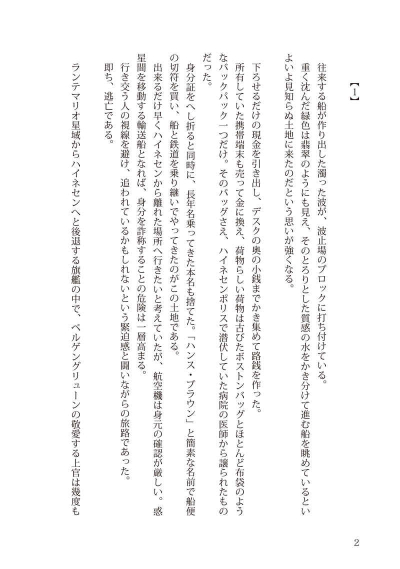 【1】
往来する船が作り出した濁った波が、波止場のブロックに打ち付けている。
重く沈んだ緑色は翡翠のようにも見え、そのとろりとした質感の水をかき分けて進む船を眺めているとい
よいよ見知らぬ土地に来たのだという思いが強くなる。
下ろせるだけの現金を引き出し、デスクの奥の小銭までかき集めて路銀を作った。
所有していた携帯端末も売って金に換え、荷物らしい荷物は古びたボストンバッグとほとんど布袋のよう
なバックパック一つだけ。そのバッグさえ、ハイネセンポリスで潜伏していた病院の医師から譲られたもの
だった。
身分証をへし折ると同時に、長年名乗ってきた本名も捨てた。「ハンス・ブラウン」と簡素な名前で船便
の切符を買い、船と鉄道を乗り継いでやってきたのがこの土地である。
出来るだけ早くハイネセンから離れた場所へ行きたいと考えていたが、航空機は身元の確認が厳しい。惑
星間を移動する輸送船となれば、身分を詐称することの危険は一層高まる。
行き交う人の視線を避け、追われているかもしれないという緊迫感と闘いながらの旅路であった。
即ち、逃亡である。
ランテマリオ星域からハイネセンへと後退する旗艦の中で、ベルゲングリューンの敬愛する上官は幾度も
2